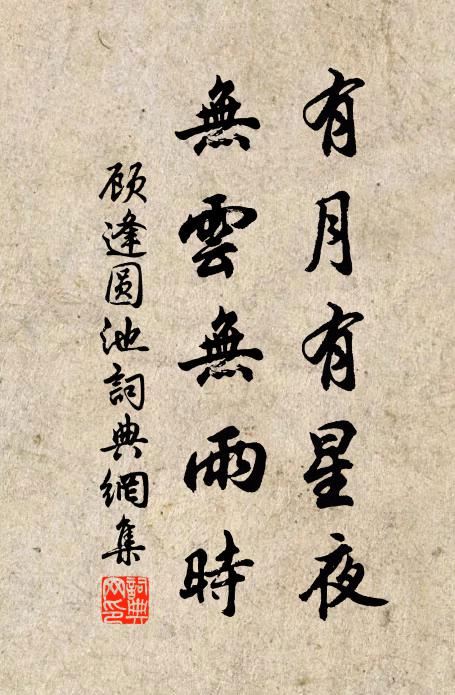 有月有星夜
無雲無雨時
顾逢圆池詞典網集
詞典網印